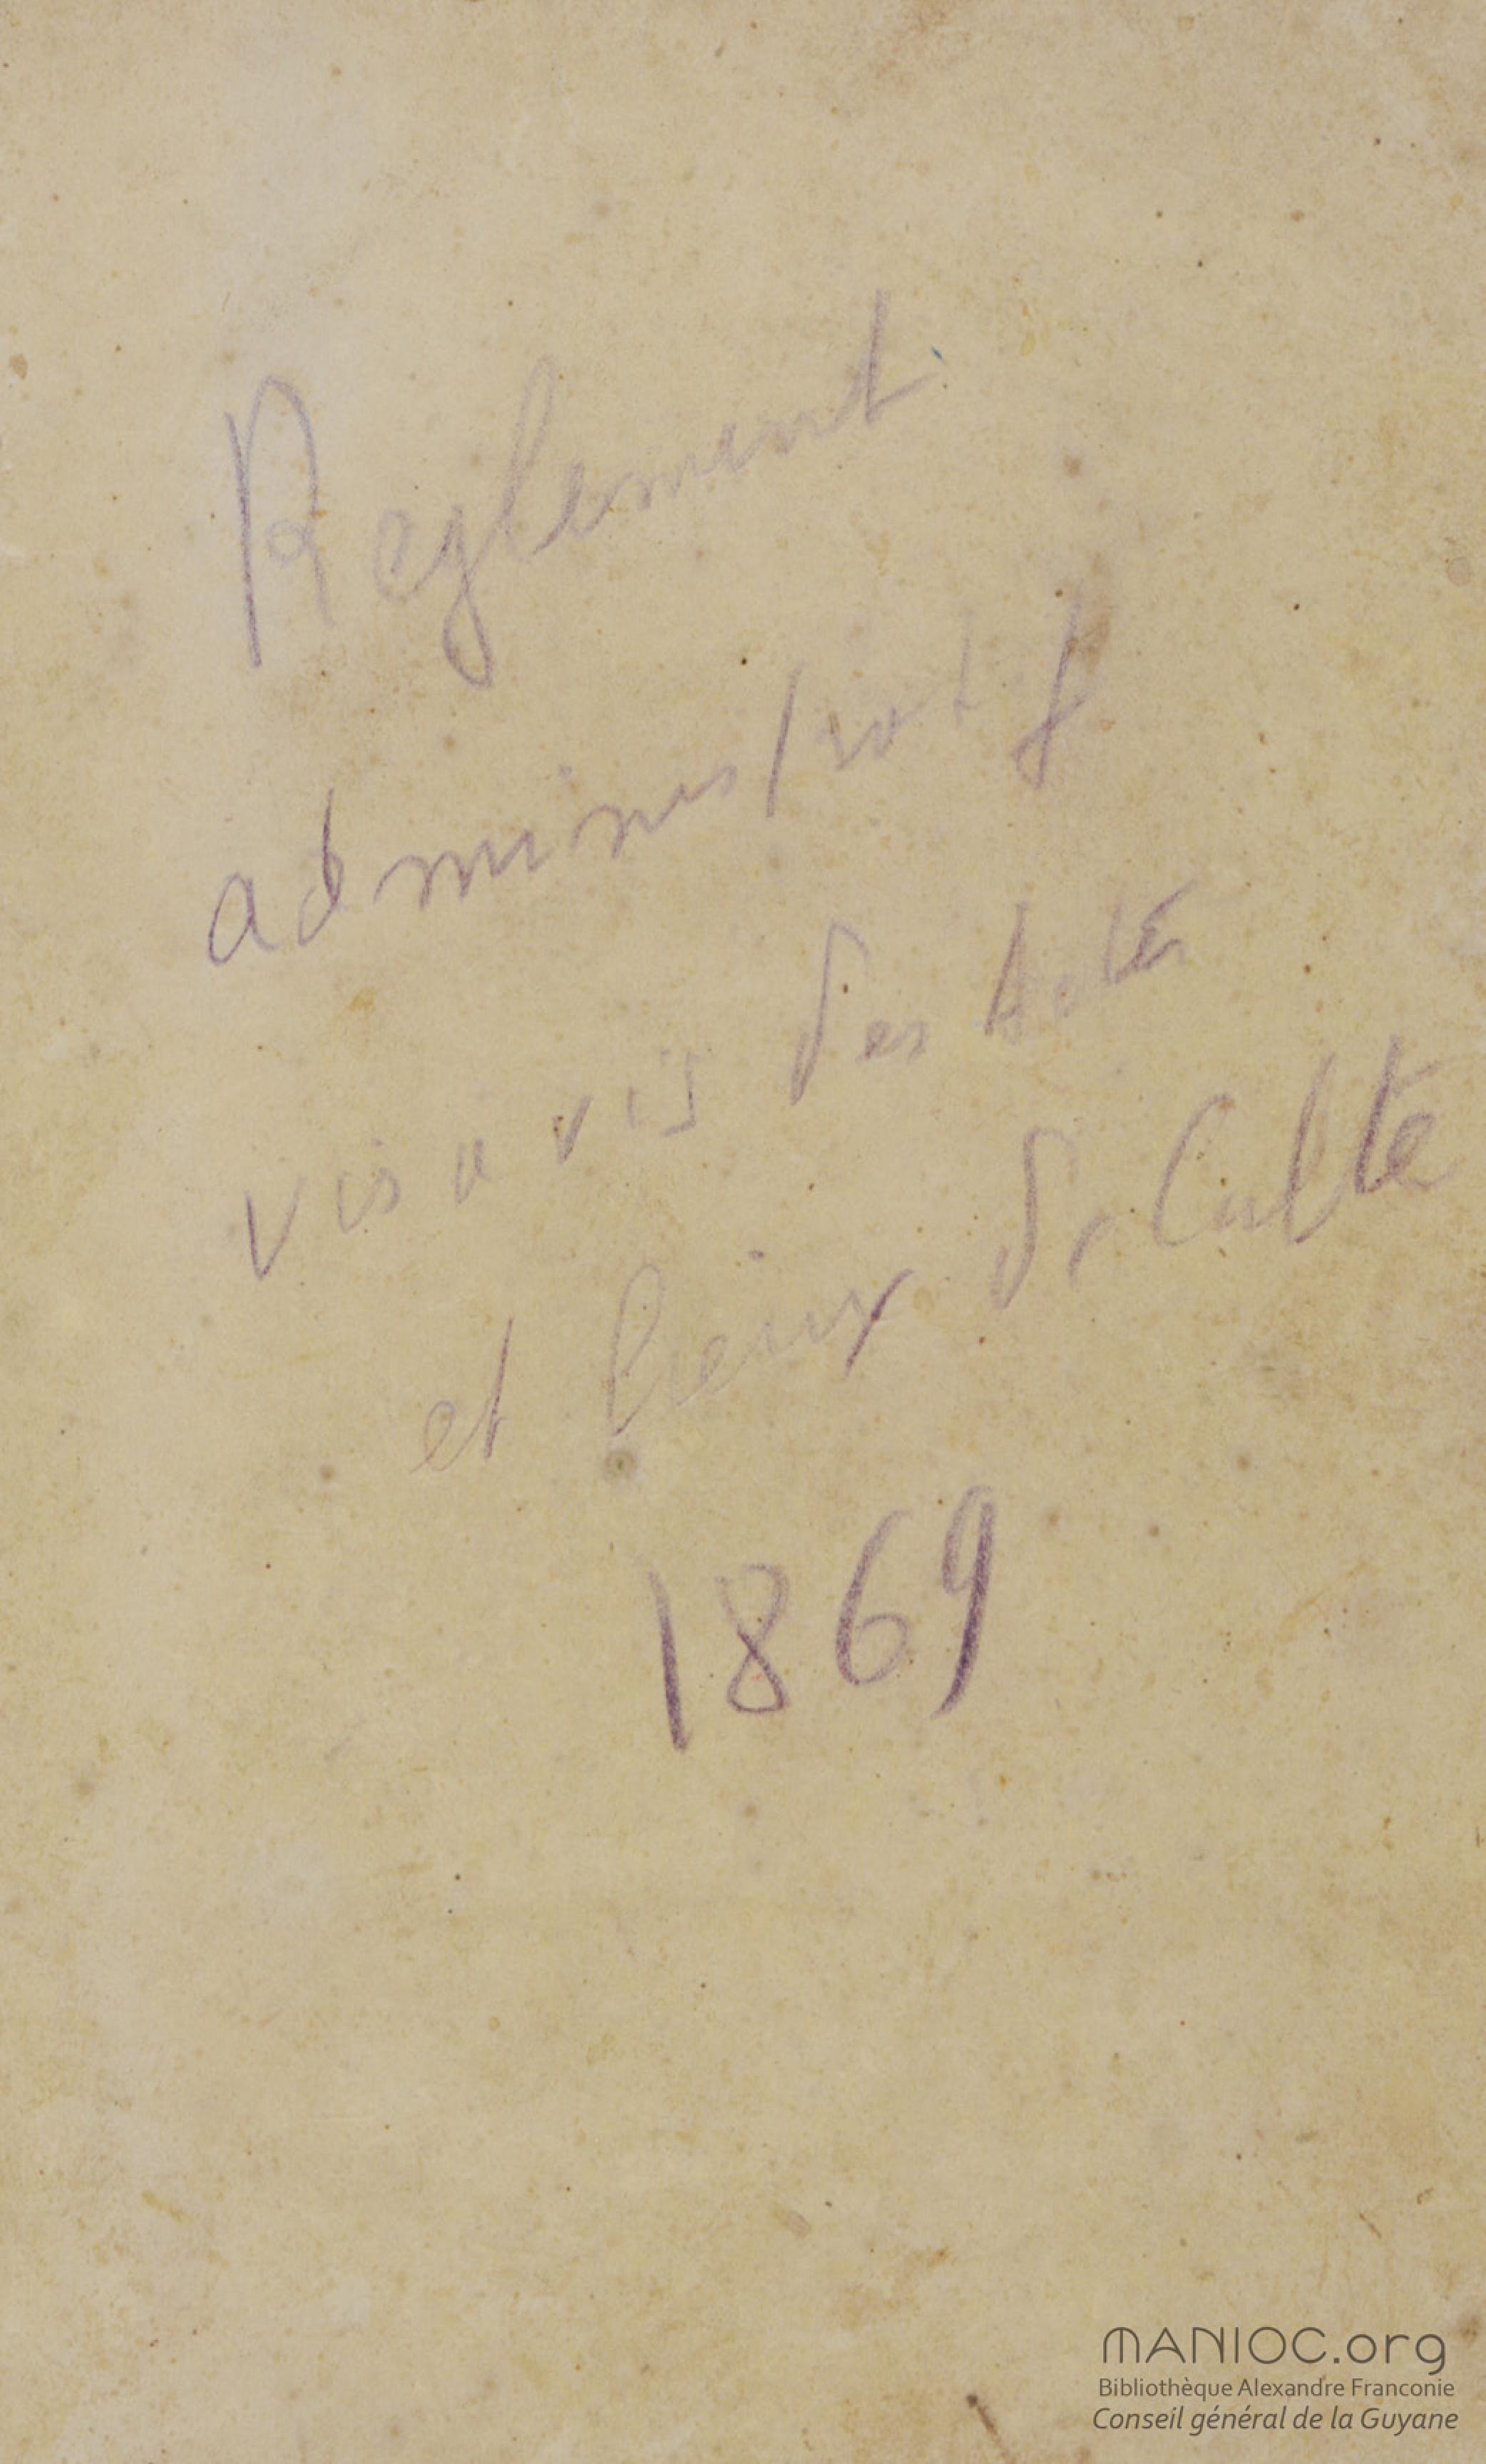 Reglement
administratif
vis a vis des Actes
et lieux de Culte
1869
MANIOC.org
Bibliothèque Alexandre Franconie
Conseil général de la Guyane